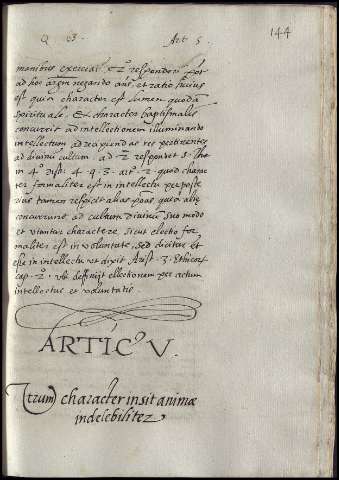 Q 63. Art 5. 144
monibus exerceat et 2º responderi pot
ad hoc argm negando ans, et ratio huius
est quia character est lumen quodã
spirituale. Et character baptismalis
concurrit ad intellectionem illuminando
intellectum ad recipiendas res pertinentes
ad divinũ cultum. ad 2 respondet S. Tho
in 4º dist. 4 q. 3. art. 2. quod charac
ter formaliter est in intellectu per poste
rius tamen respicit alias potias quia aliae
concurrunt ad cultum divinũ suo modo
et utuntur charactere, sicut electio for
maliter est in voluntate, sed dicitur et
esse in intellectu ut dixit Arist. 3. Ethicor
cap. 2º. ubi deffinijt ellectionem per actum
intellectus et voluntatis.
ARTICº V.
Utrum character insit animæ
indelebiliter